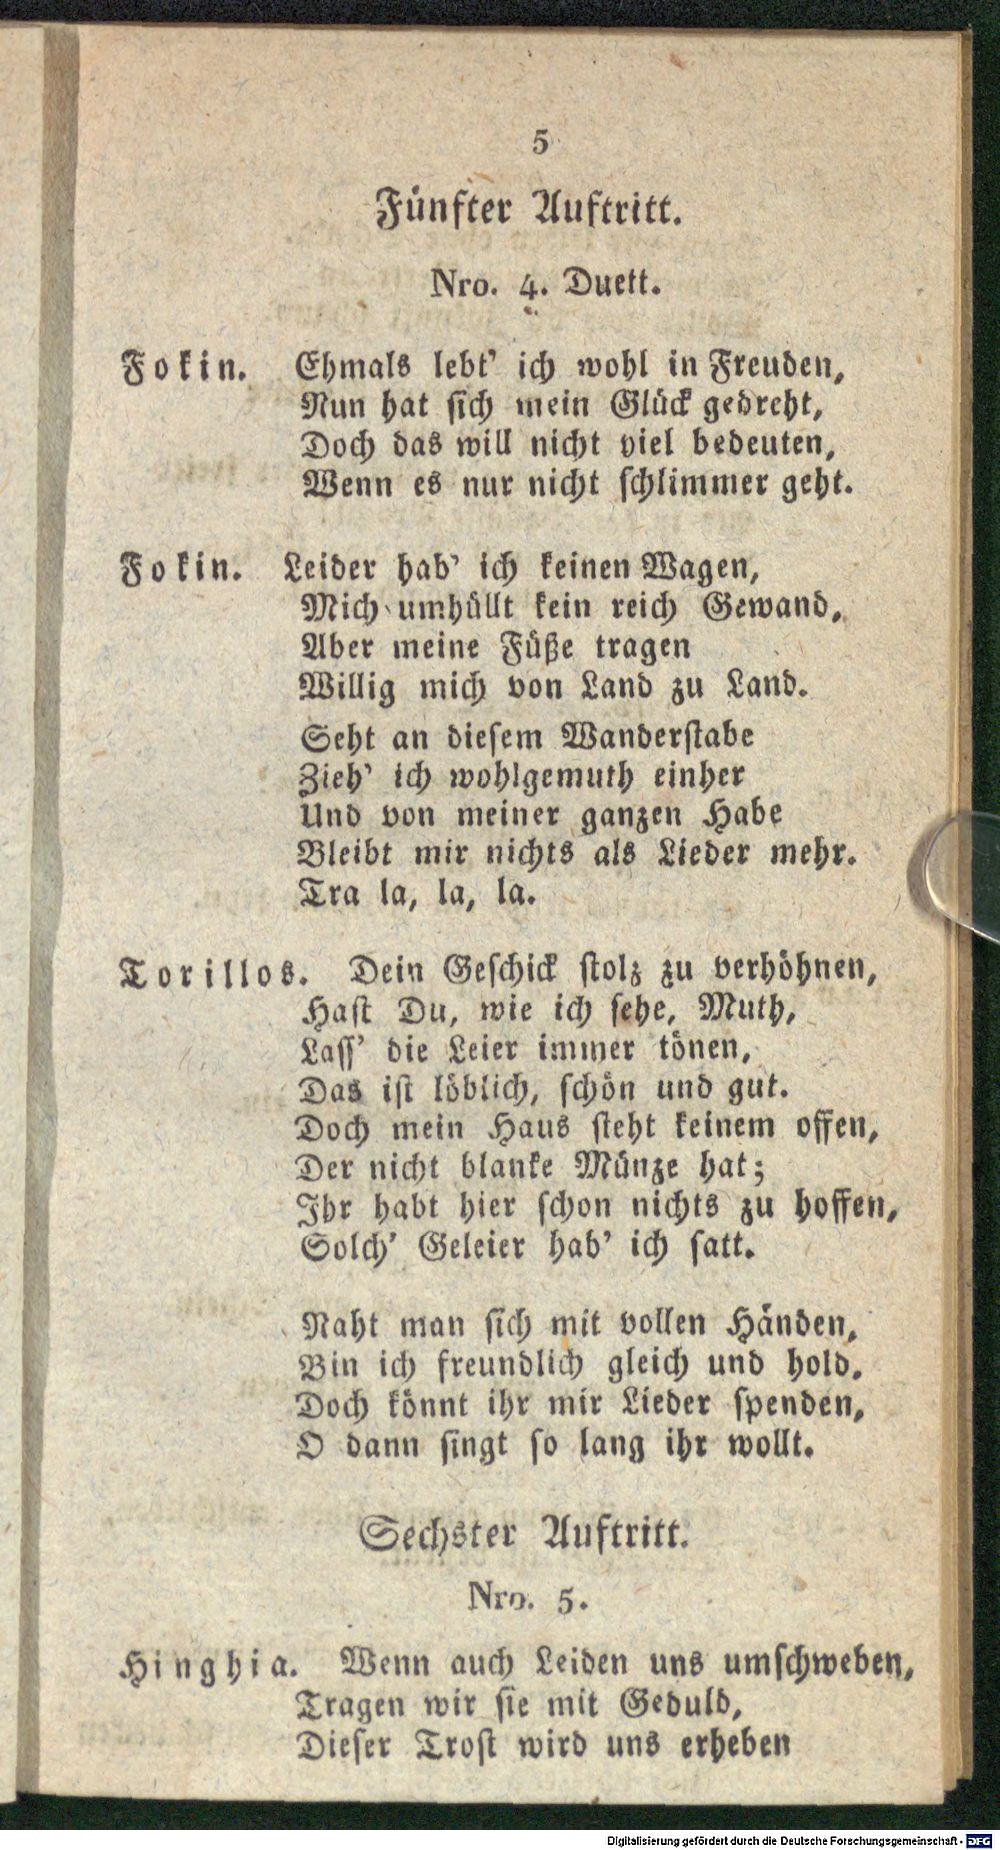 5
Fünfter Auftritt.
Nro. 4. Duett.
Fokin. Ehmals lebt' ich wohl in Freuden,
Nun hat sich mein Glück gedreht,
Doch das will nicht viel bedeuten,
Wenn es nur nicht schlimmer geht.
Fokin. Leider hab' ich keinen Wagen,
Mich umhüllt kein reich Gewand,
Aber meine Füße tragen
Willig mich von Land zu Land.
Seht an diesem Wanderstabe
Zieh' ich wohlgemuth einher
Und von meiner ganzen Habe
Bleibt mir nichts als Lieder mehr.
Tra la, la, la.
Torillos. Dein Geschick stolz zu verhöhnen,
Hast Du, wie ich sehe, Muth,
Lass' die Leier immer tönen,
Das ist löblich, schön und gut.
Doch mein Haus steht keinem offen,
Der nicht blanke Münze hat;
Ihr habt hier schon nichts zu hoffen,
Solch' Geleier hab' ich satt.
Naht man sich mit vollen Händen,
Bin ich freundlich gleich und hold,
Doch könnt ihr mir Lieder spenden,
O dann singt so lang ihr wollt.
Sechster Auftritt.
Nro. 5.
Hinghia. Wenn auch Leiden uns umschweben,
Tragen wir sie mit Geduld,
Dieser Trost wird uns erheben
Digitalisierung gefördert durch die Deutsche Forschungsgemeinschaft - DFG